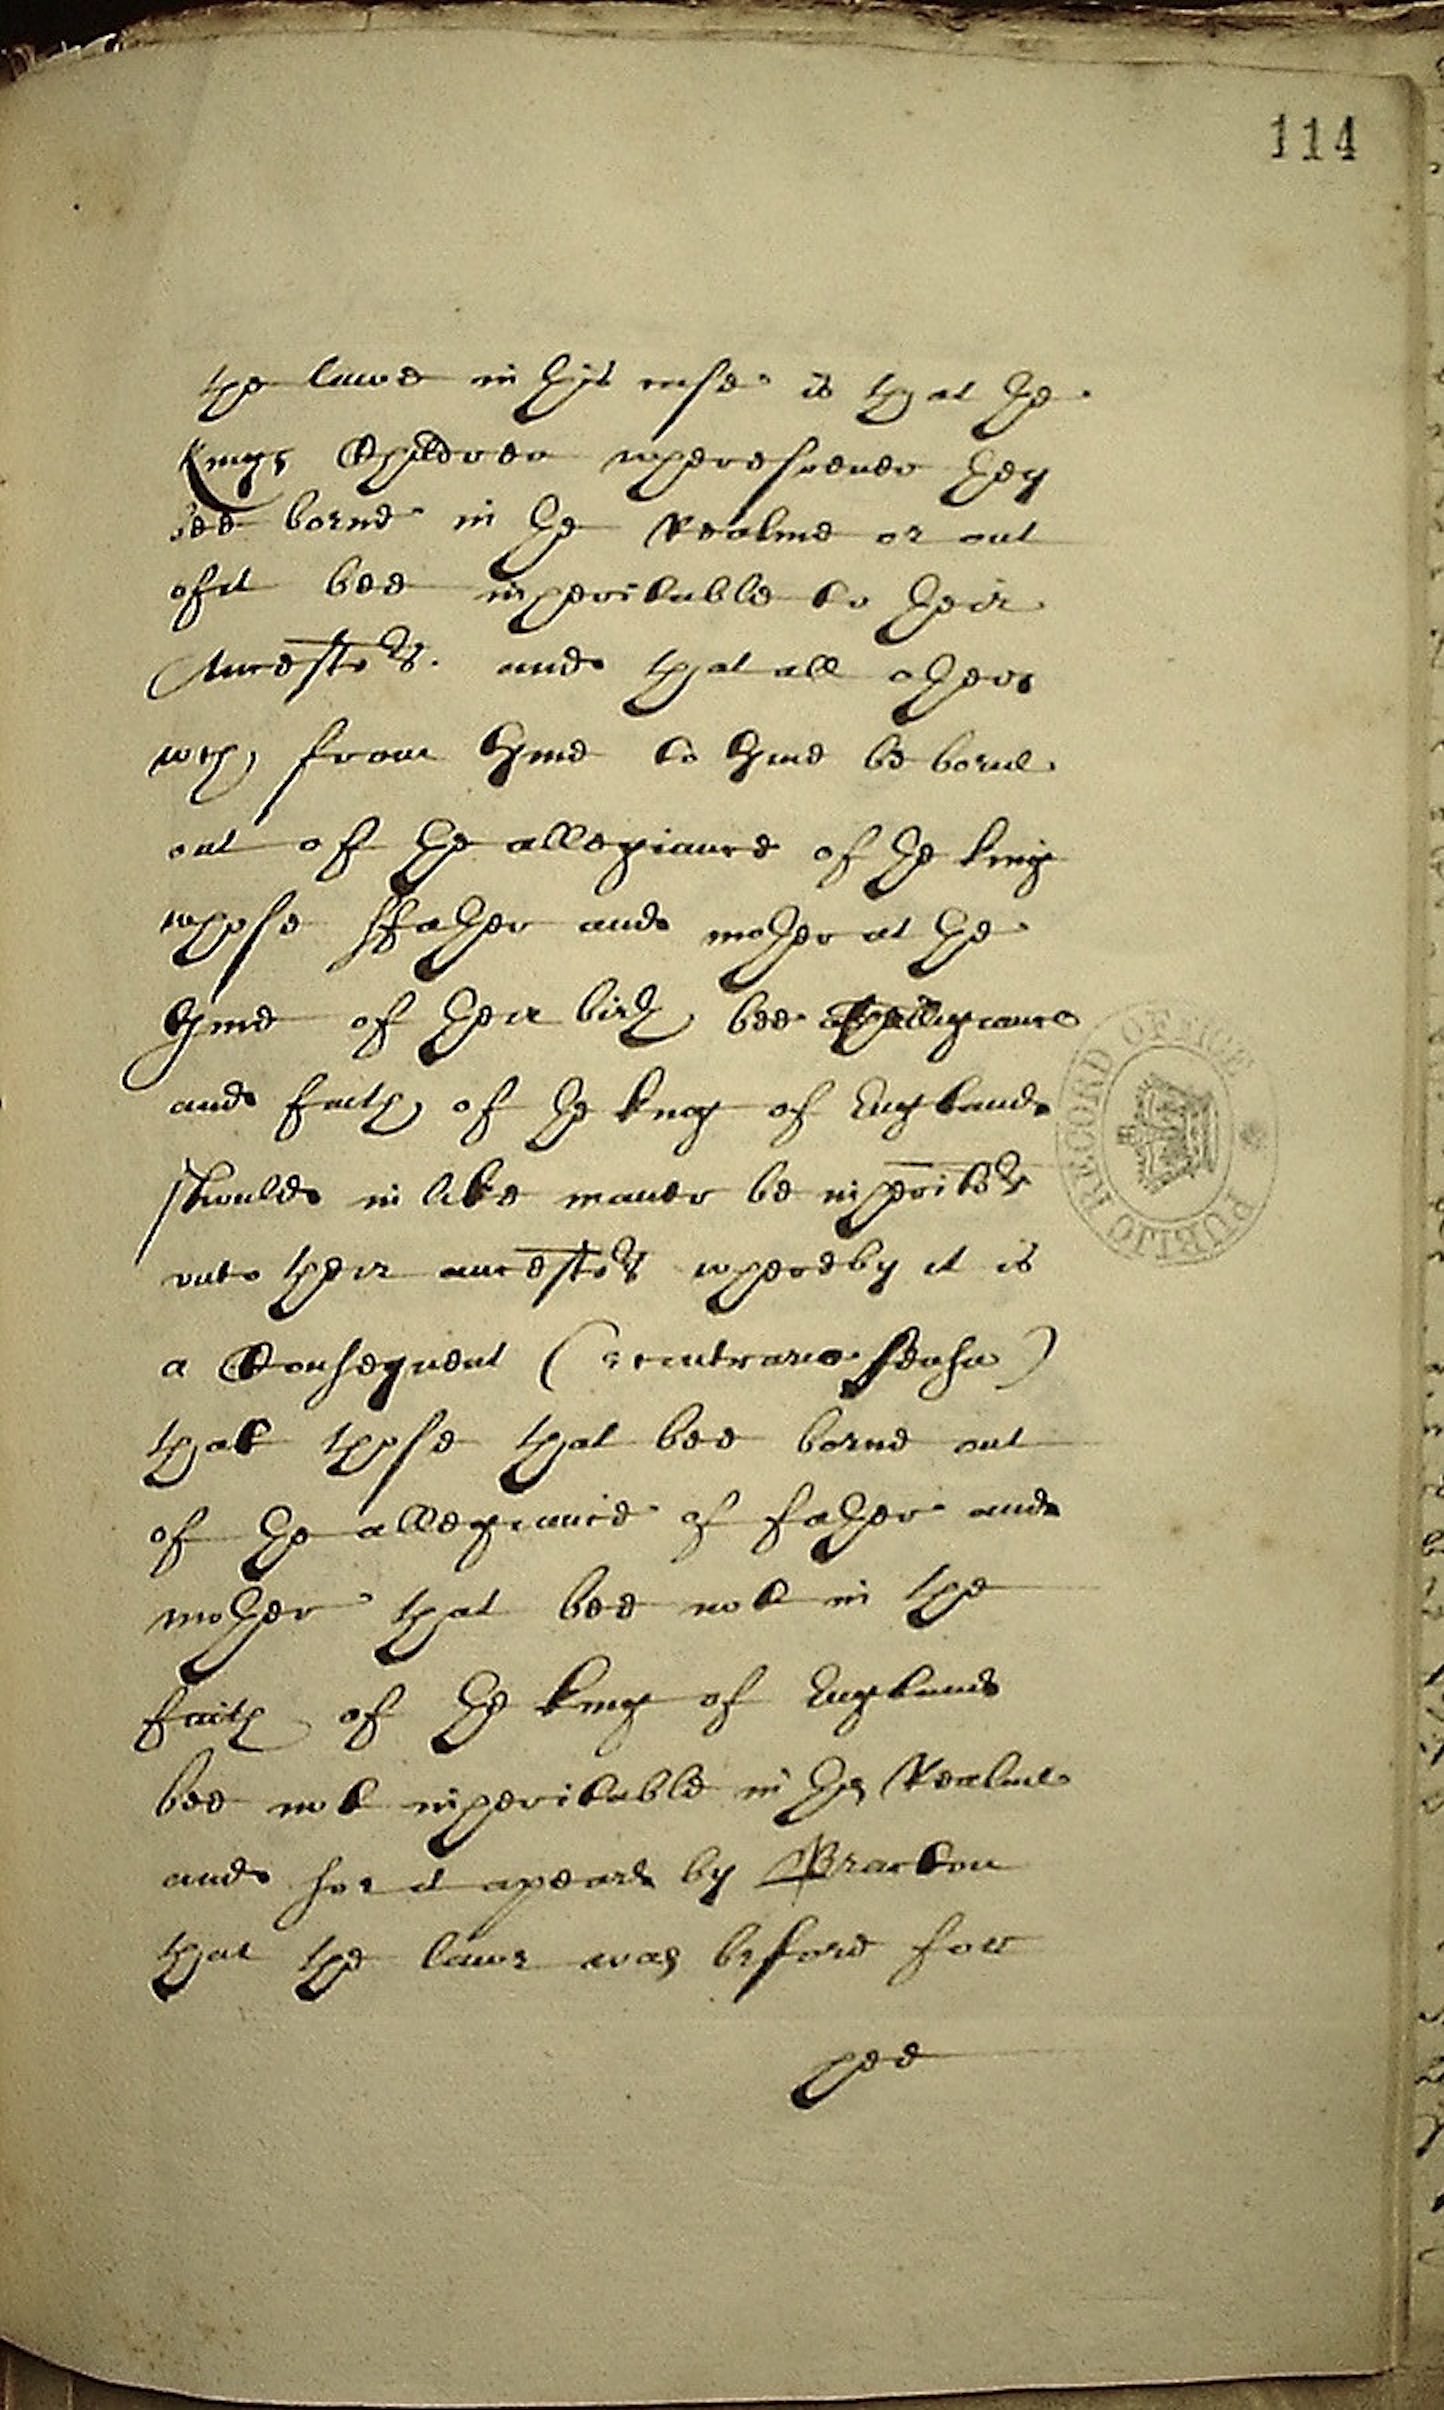 114
the lawe in this case is that the
kings Children wheresoever they
bee borne in the Realme or out
of it bee inheritable to their
Ancestors. and that all others
wch from tyme to tyme be borne
out of the allegiance of the king
whose ffather and mother at the
tyme of their birth bee at the allegiance
and faith of the king of England
should in like maner be inheritors
unto their ancestors whereby it is
a Consequent (a contrario sensu)
that those that bee borne out
of the allegiance of father and
mother that bee not in the
faith of the king of England
bee not inheritable in the Realme
and soe it apears by Bracton
that the lawe was before for
hee
PUBLIC RECORD OFFICE